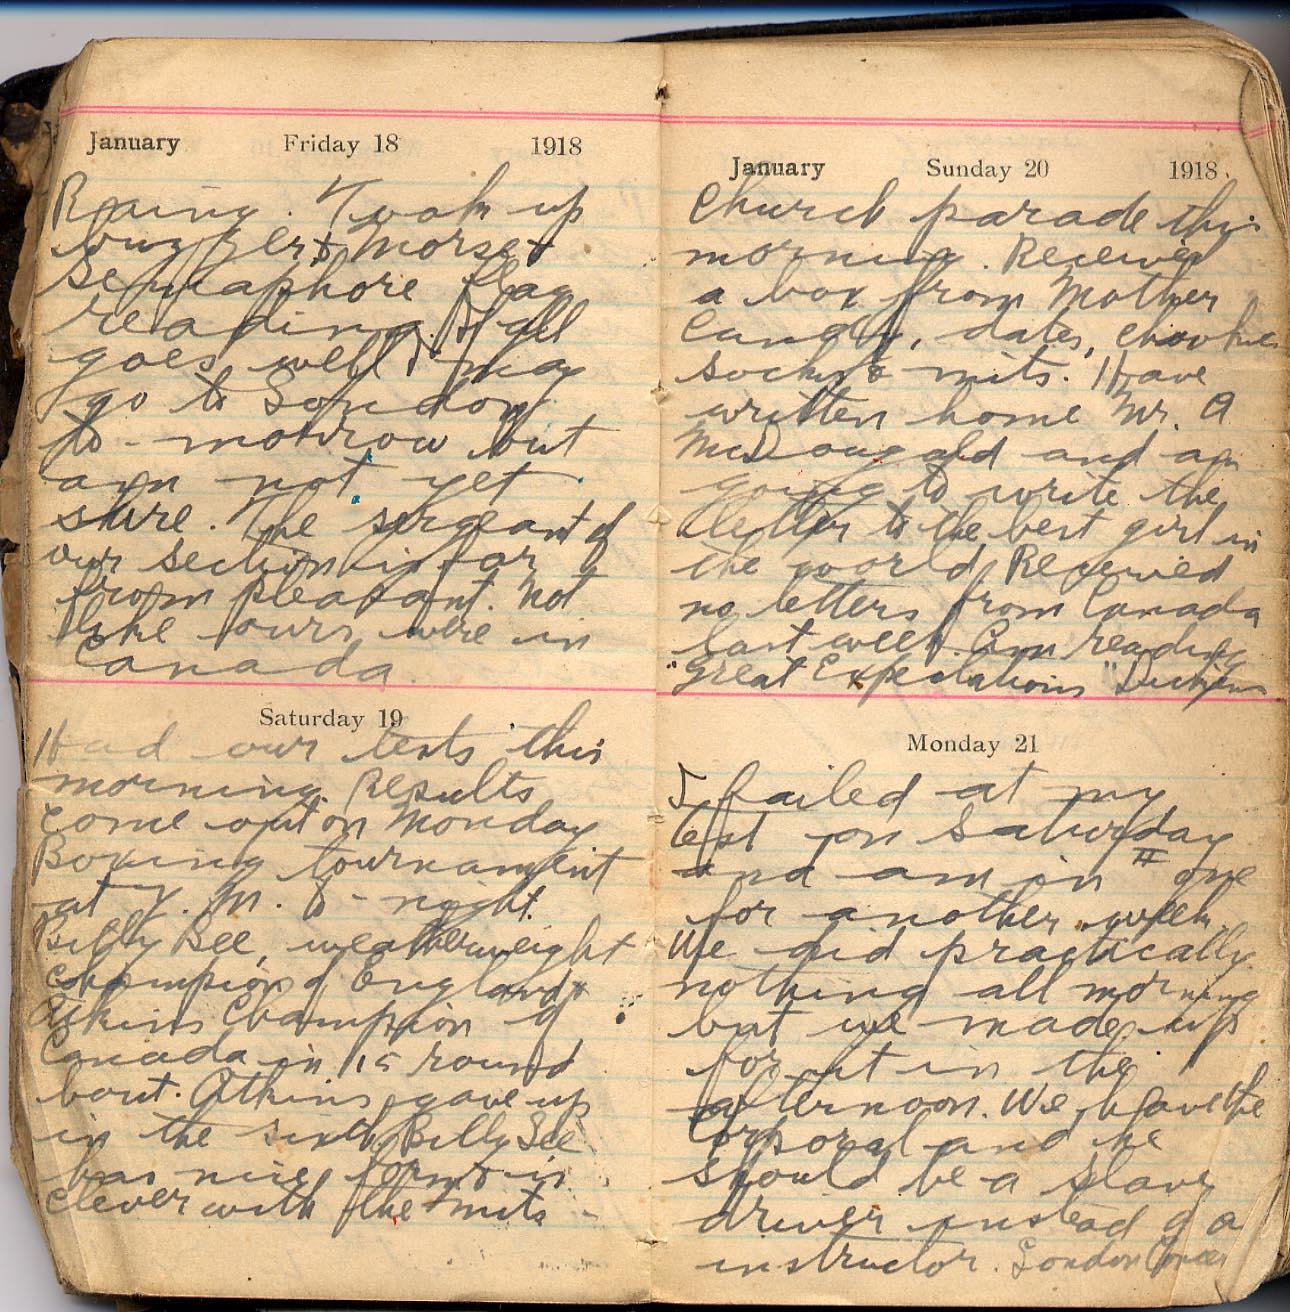 January Friday 18 1918
Raining. Took up
buzzer & Morse &
Semaphore flag
reading. If all
goes well I may
go to London
to-morrow but
am not yet
sure. The sergeant of
our section is far
from pleasant. Not
like ours were in
Canada.
Saturday 19
Had our tests this
morning. Results
come out on Monday
Boxing tournament
at Y. M. to-night.
Billy Bee, weatherweight
champion of England &
Atkins Champion of
Canada in 15 round
bout. Atkins gave up
in the sixth. Billy Bee
has nice form & is
clever with the mits
January Sunday 20 1918
Church parade this
morning. Received
a box from Mother
Candy, dates,
socks & mits. Have
written home Mr. A
McDougald and am
going to write the
letter to the best girl in
the world. Received
no letters from Canada
last week. Am reading
"Great Expectations" Dickens
Monday 21
I failed at my
test on Saturday
and am in II one
for another week.
We did practically
nothing all morning
but we made up
for it in the
afternoon. We have the
Corporal and he
should be a slave
driver instead of a
instructor. London